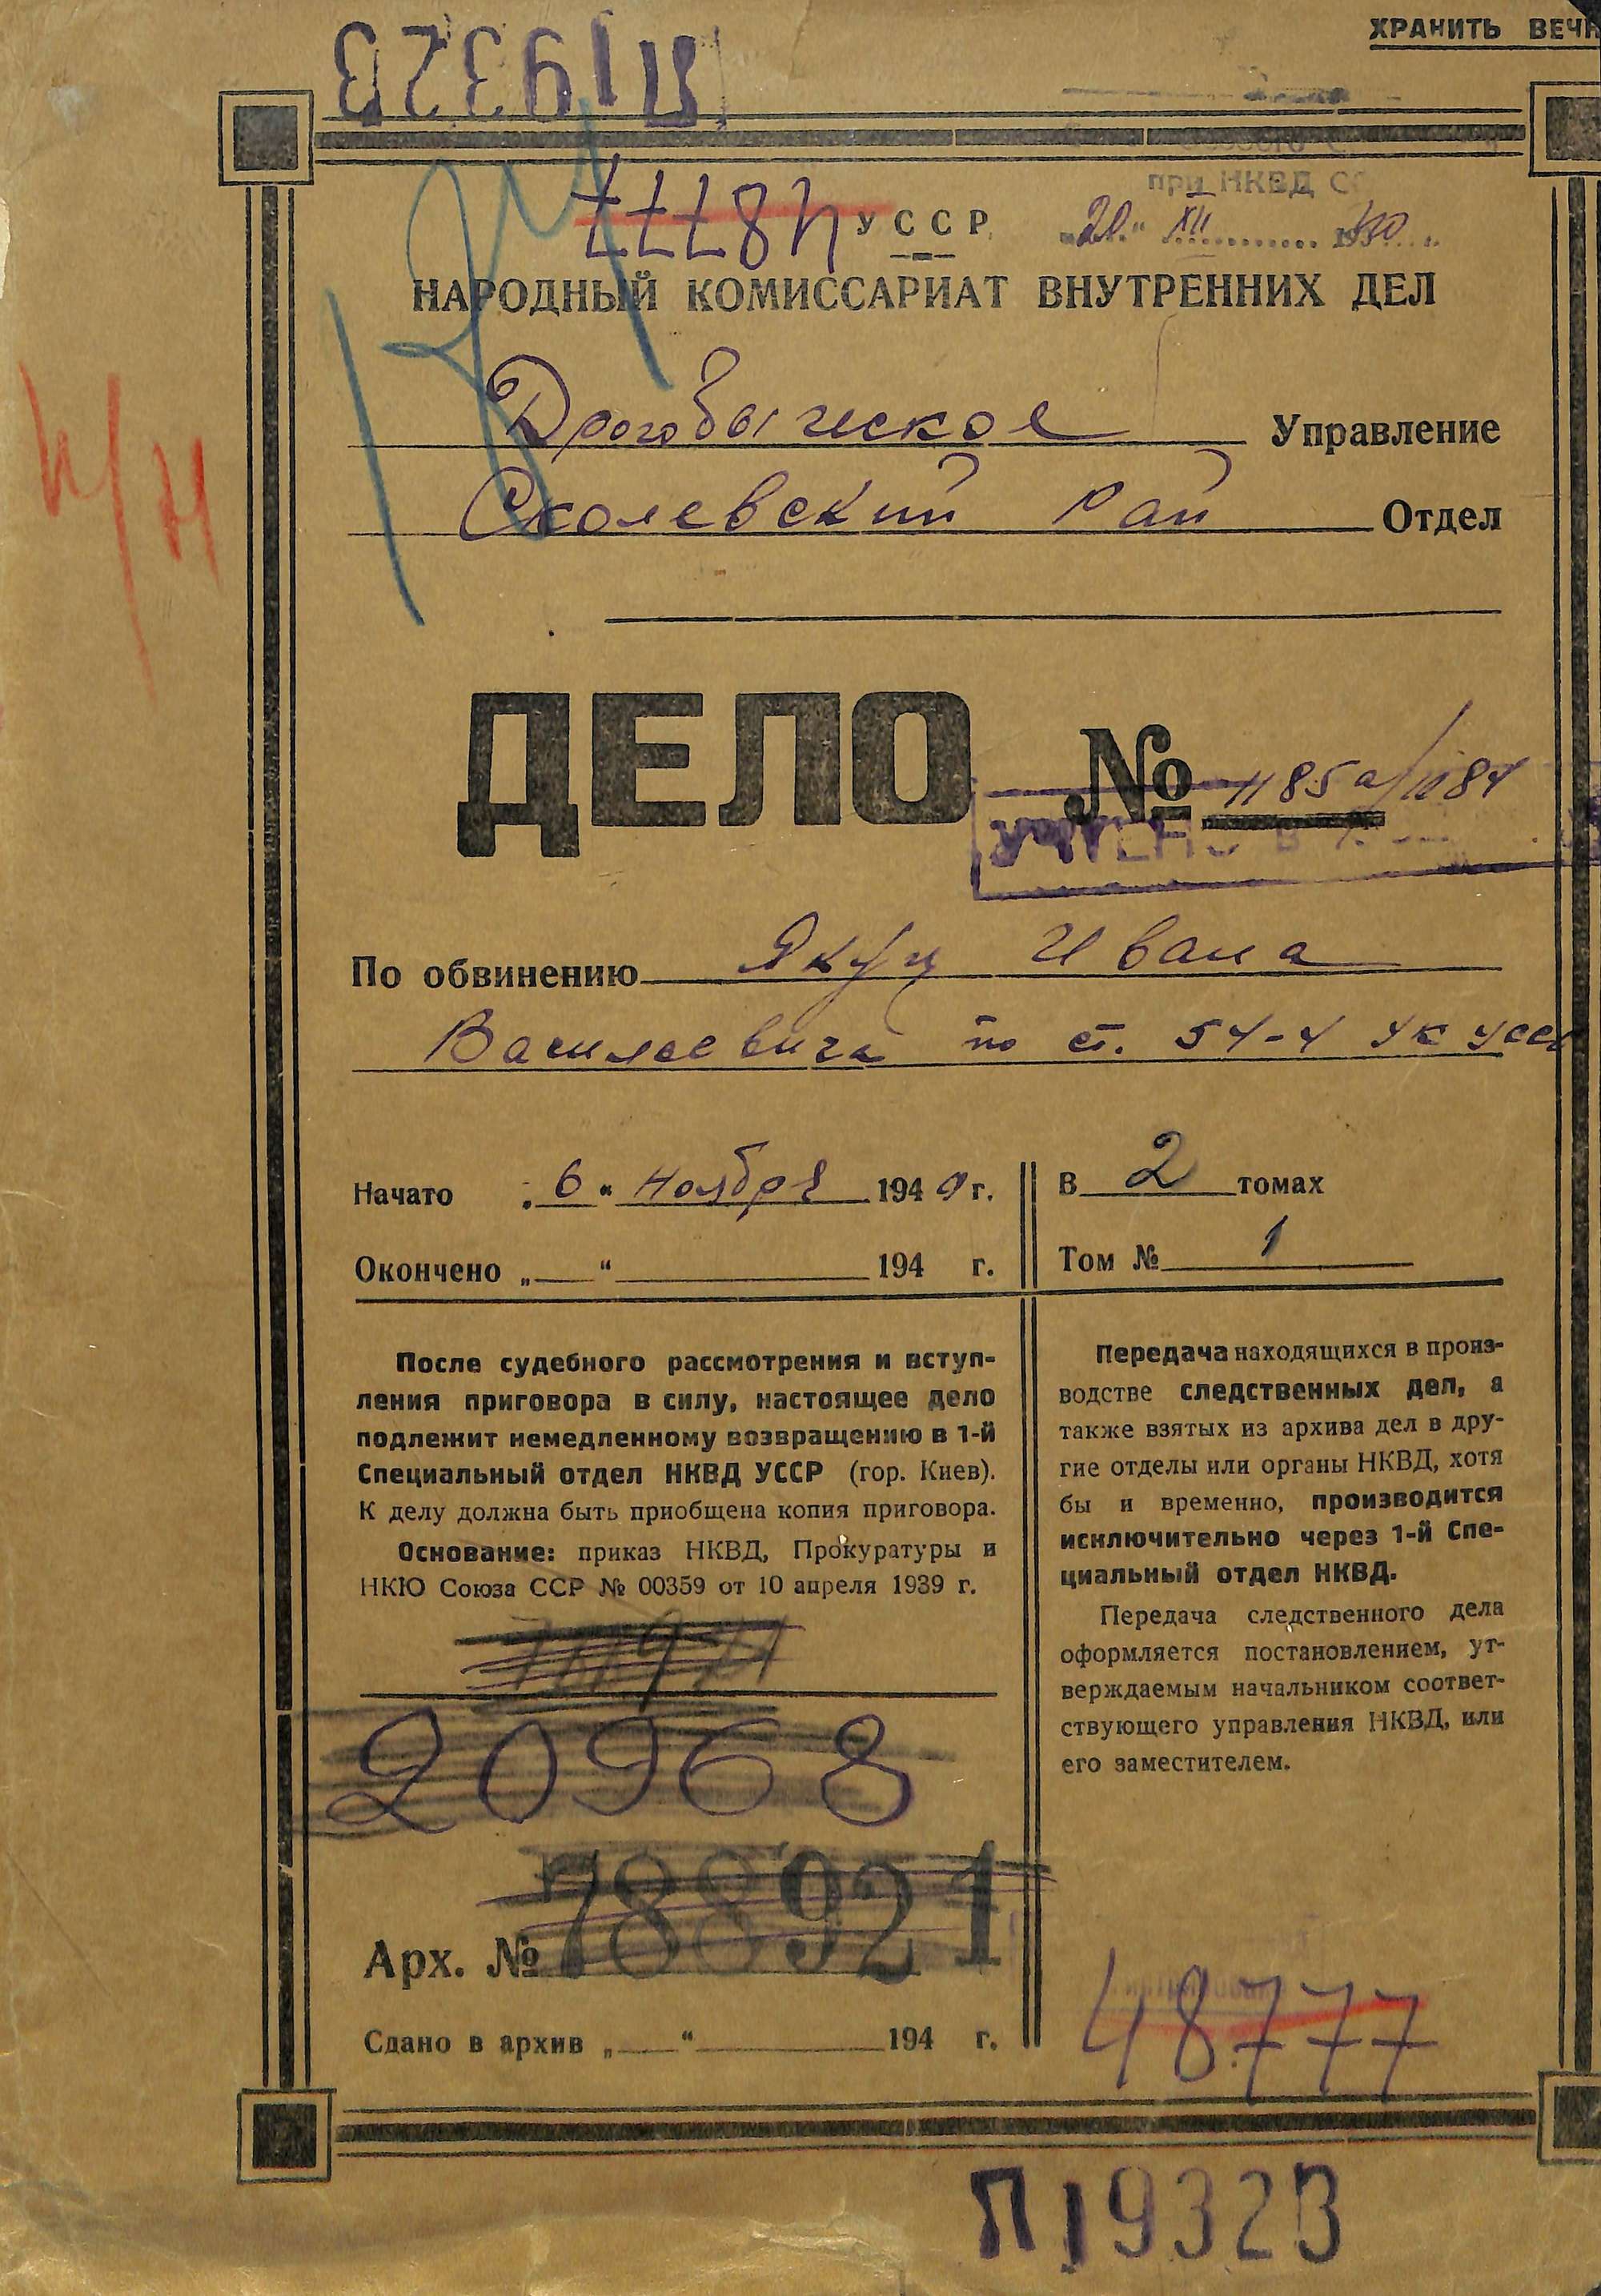 ХРАНИТЬ ВЕЧН
П19323
при НКВД С
„20.“ XII 1940
48777
УССР
НАРОДНЫЙ КОМИССАРИАТ ВНУТРЕННИХ ДЕЛ
Дрогобычское Управление
Сколевский Рай Отдел
н/н
ДЕЛО №
УЧТЕНО В
По обвинению Якуц Ивана
Василевича по ст. 54-4 УК УССР
Начато „6“ ноября 1940 г.
В 2 томах
Окончено „ “ 194 г.
Том № 1
После судебного рассмотрения и вступ-
ления приговора в силу, настоящее дело
подлежит немедленному возвращению в 1-й
Специальный отдел НКВД УССР (гор. Киев).
К делу должна быть приобщена копия приговора.
Основание: приказ НКВД, Прокуратуры и
НКЮ Союза ССР № 00359 от 10 апреля 1939 г.
Передача находящихся в произ-
водстве следственных дел, а
также взятых из архива дел в дру-
гие отделы или органы НКВД, хотя
бы и временно, производится
исключительно через 1-й Спе-
циальный отдел НКВД.
Передача следственного дела
оформляется постановлением, ут-
верждаемым начальником соответ-
ствующего управления НКВД, или
его заместителем.
20968
Арх. № 788921
Сдано в архив „ “ 194 г.
48777
П19323